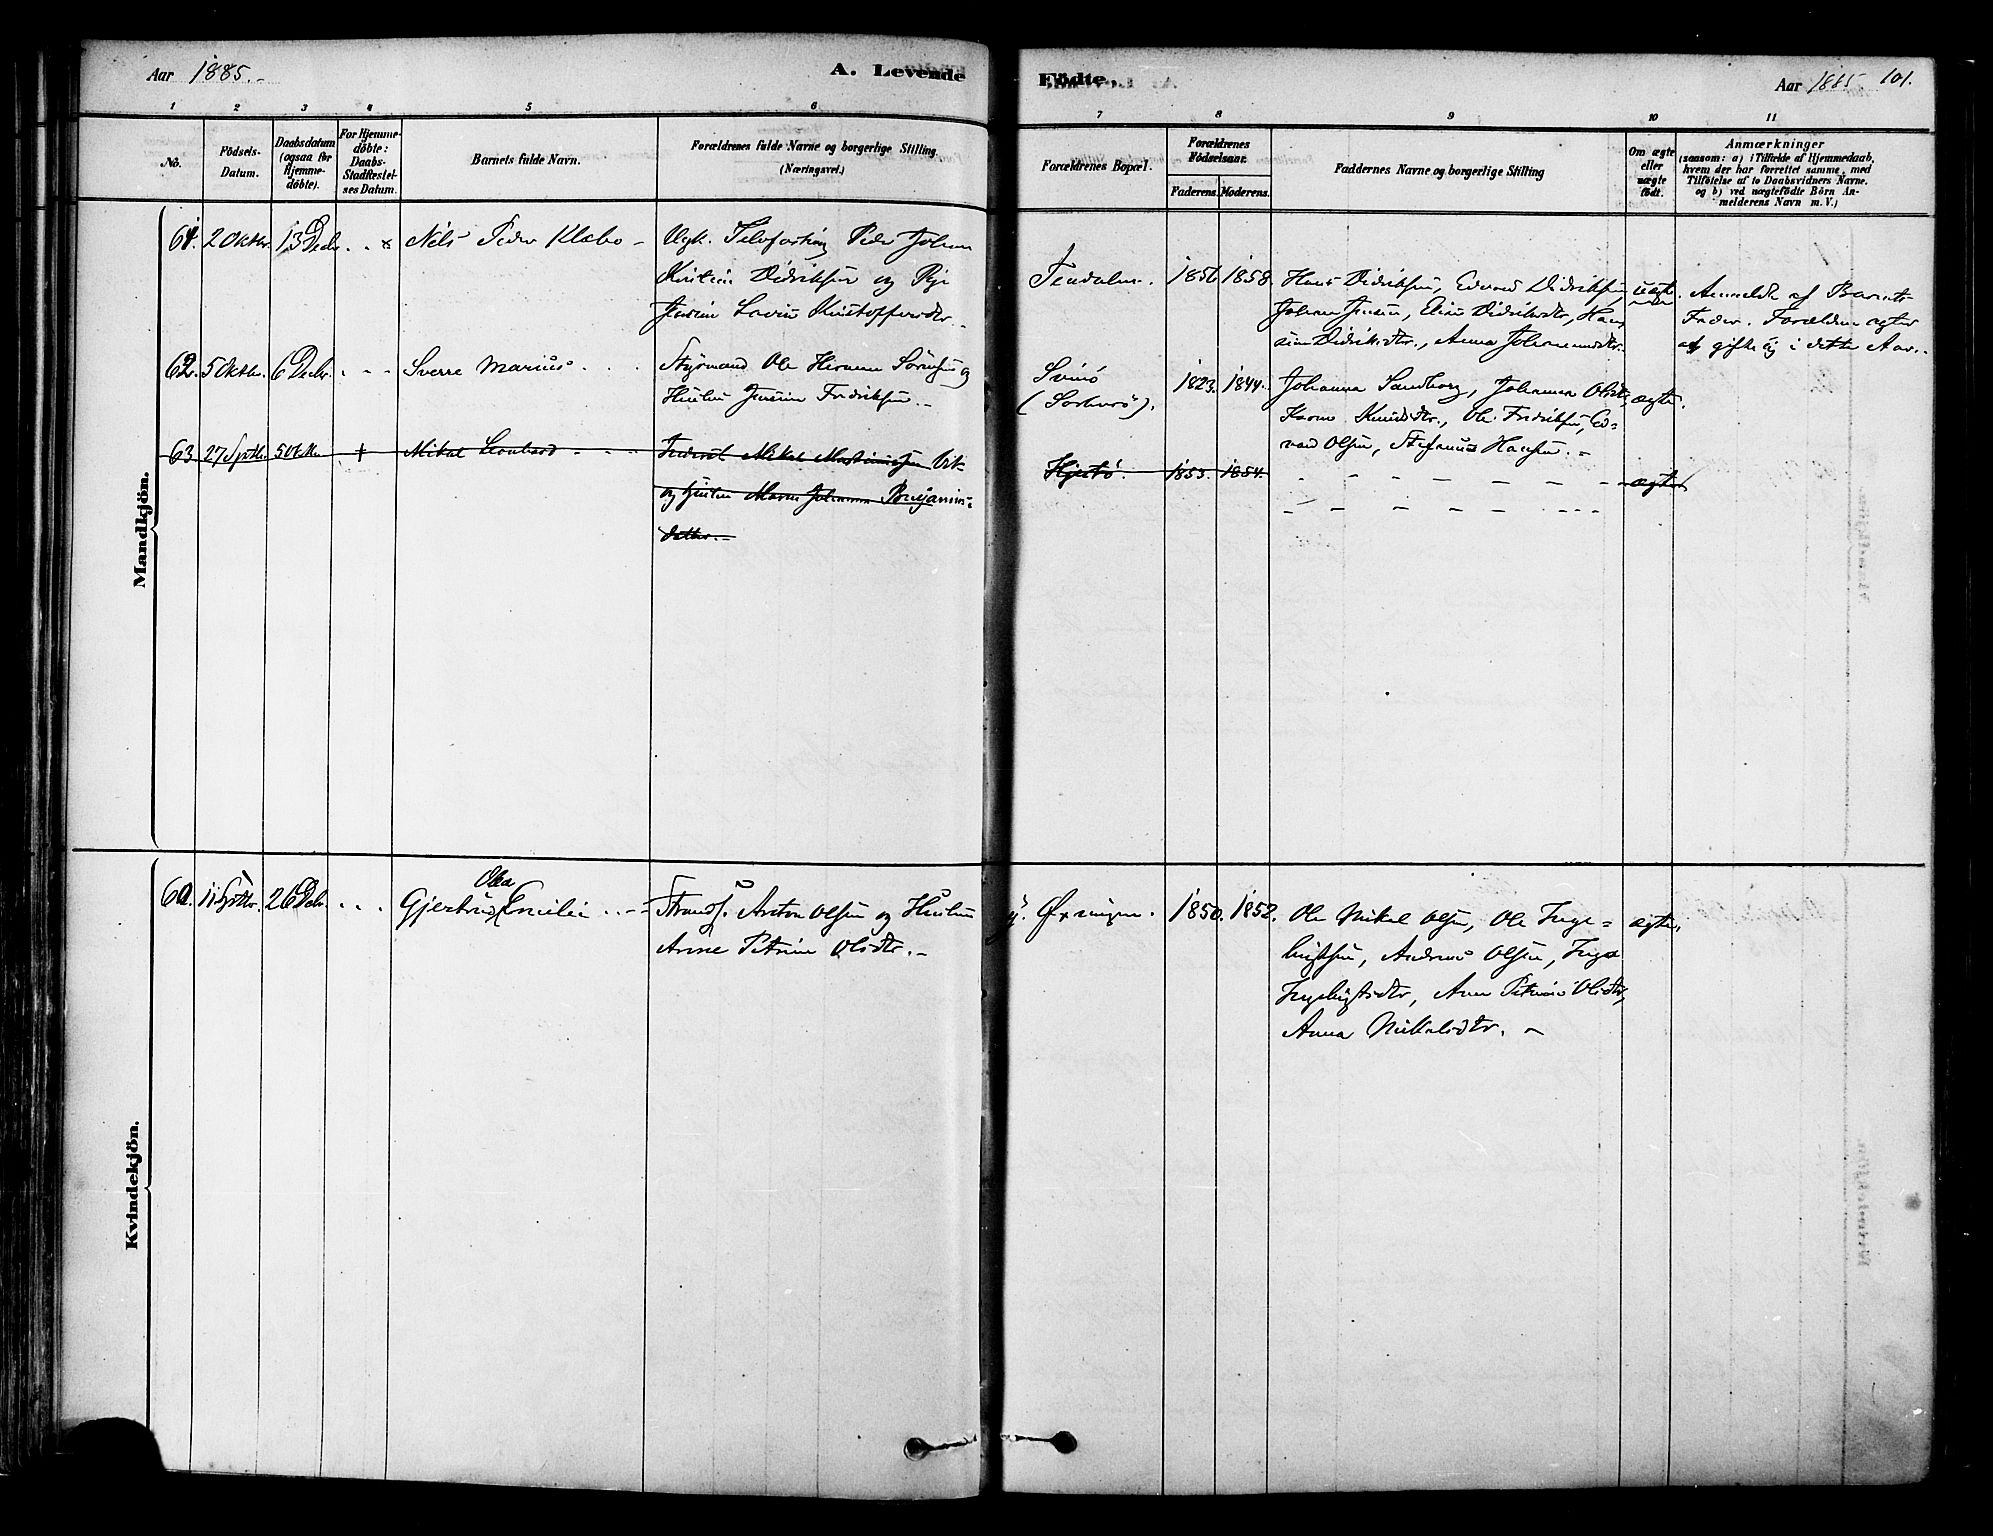 Aar 1885.-
A. Levende
Födte.
Aar 1885.
101.
1
2
3
4
5
6
7
8
9
10
11
No.
Födsels-
Datum.
Daabsdatum
(ogsaa for
Hjemme-
döbte).
For Hjemme-
döbte:
Daabs-
Stadfæstel-
ses Datum.
Barnets fulde Navn.
Forældrenes fulde Navne og borgerlige Stilling
(Næringsvei.)
Forældrenes Bopæl.
Forældrenes
Födselsaar.
Faderens.
Moderens.
Faddernes Navne og borgerlige Stilling
Om ægte
eller
uægte
födt.
Anmærkninger
(saasom: a) i Tilfælde af Hjemmedaab,
hvem der har forrettet samme, med
Tilföielse af to Daabsvidners Navne.
og b) ved uægtefödte Börn An-
melderens Navn m. V.)
Mandkjön.
61. 2 Oktbr. 13 Decbr. Nils Peder Klæbo - Ugk. Peder Johan
Kristin Didriksen og Pige
Lovise Kristoffersdtr.-
1856 1858. Hans Didriksen, Edvard Didriksen,
Johan Jensen, Didriksdtr., Han
sine Didriksdtr., Anna Johannesdtr.
uægte
Anmeldt af Barnets
Fader. Forældrene agter
at gifte sig i dette Aar.
62. 5 Oktbr. 6 Decbr. Sverre Marius Styrmand Ole Herman Sörensen og
Hustru Fredriksen.-
Svinö
1823. 1844. Johanna Sandberg, Johanna Olsdtr,
Karen Knudsdtr., Ole Fredriksen, Ed-
vard Olsen, Hansen.-
ægte.
63 27 Septbr. 5 Oktbr. + Mikal Leonhard Inderst Mikal
og Hustru Maren Johanna Benjamins-
datter.-
Hjertö. 1853. 1854. ægte
Kvindekjön.
60. 11 Septbr. 26 Decbr. Olea
Gjertrud Emilie Strands. Anton Olsen og Hustru
Anne Petrine Olsdtr.-
Öxningen. 1850. 1852. Ole Mikal Olsen, Ole Inge-
brigtsen, Andreas Olsen, Inga
Ingebrigtsdtr, Ane Olsdtr,
Anna Mikalsdtr.-
ægte.